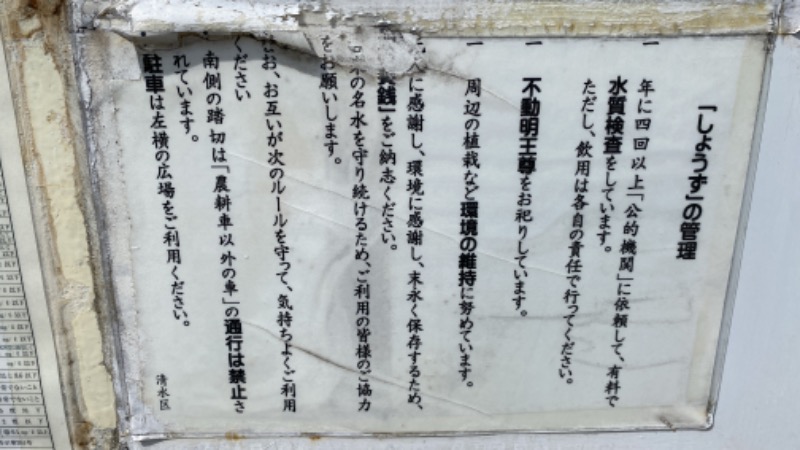 「しょうず」の管理
一 年に四回以上「公的機関」に依頼して、有料で
水質検査をしています。
ただし、飲用は各自の責任で行ってください。
一 不動明王尊をお祀りしています。
一 周辺の植栽など環境の維持に努めています。
に感謝し、環境に感謝し、末永く保存するため、
銭」をご納志ください。
の名水を守り続けるため、ご利用の皆様のご協力
をお願いします。
お、お互いが次のルールを守って、気持ちよくご利用
ください
南側の踏切は「農耕車以外の車」の通行は禁止さ
れています。
駐車は左横の広場をご利用ください。
清水区